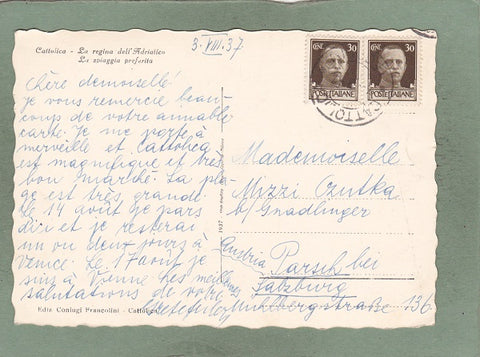 Cattolica - La regina dell'Adriatico
La spiaggia preferita
3. VIII. 37
CENT. 30
POSTE ITALIANE
CENT. 30
POSTE ITALIANE
CATTOLICA
Chère demoiselle!
je vous remercie beau-
coup de votre aimable
carte. Je me porte à
merveille et Cattolica
est magnifique et très
bon marché. La pla-
ge est très grande.
Le 14 août je pars
d'ici et je resterai
un ou deux jours à
Venice. Le 17 août je
suis à Vienne. Les meilleures
salutations de votre
Mademoiselle
Mizzi
b/ Gnadlinger
Parsch bei
Salzburg
Mühlbergstraße 136
Austria
1937
Ediz Coniugi Françolini - Cattolica